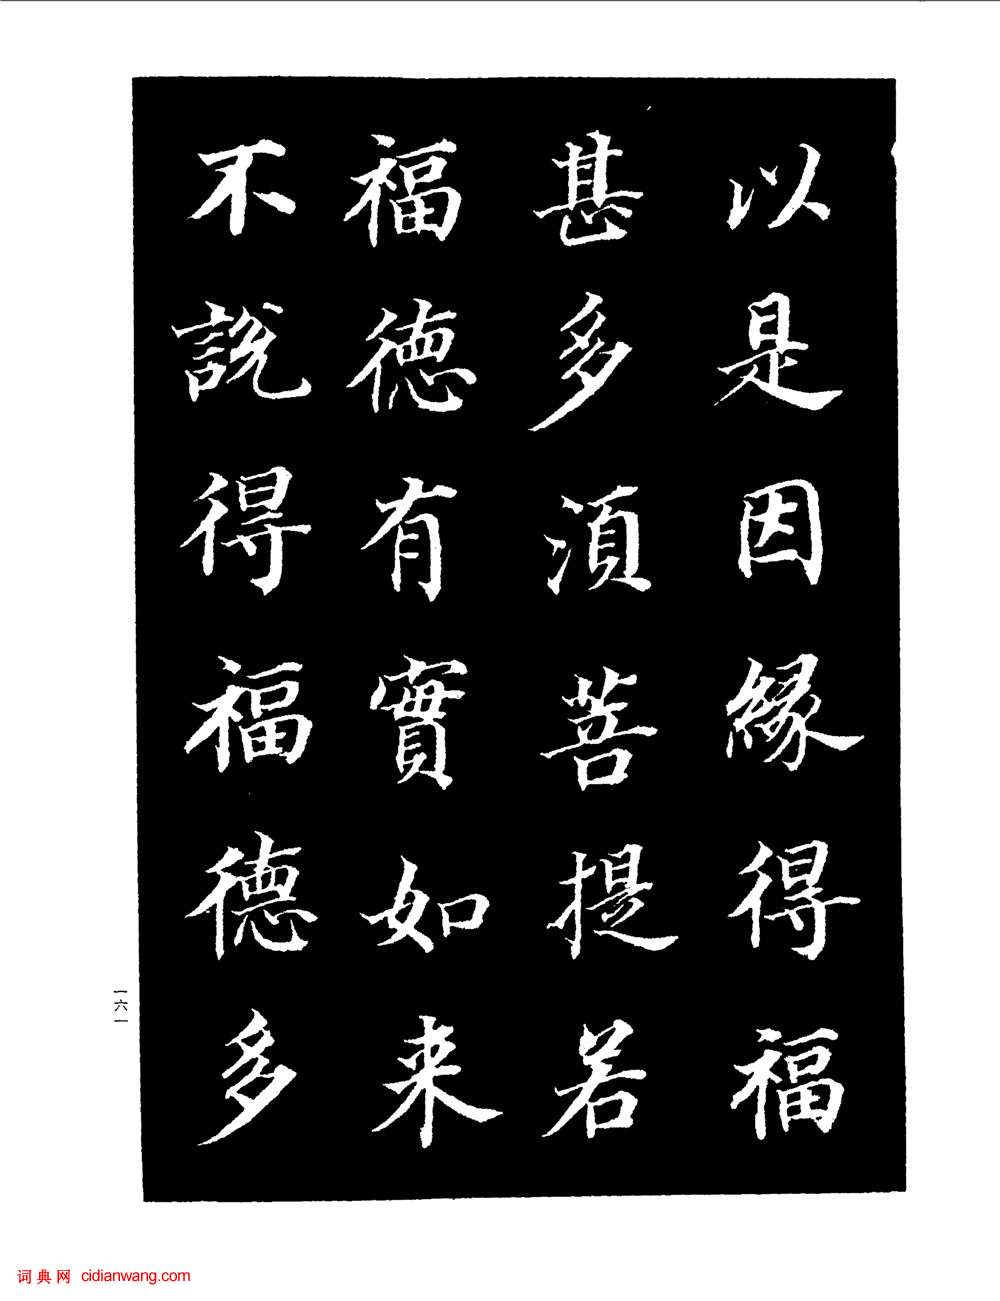 以是因緣得福
甚多須菩提若
福德有實如来
不說得福德多
一六一
词典网 cidianwang.com